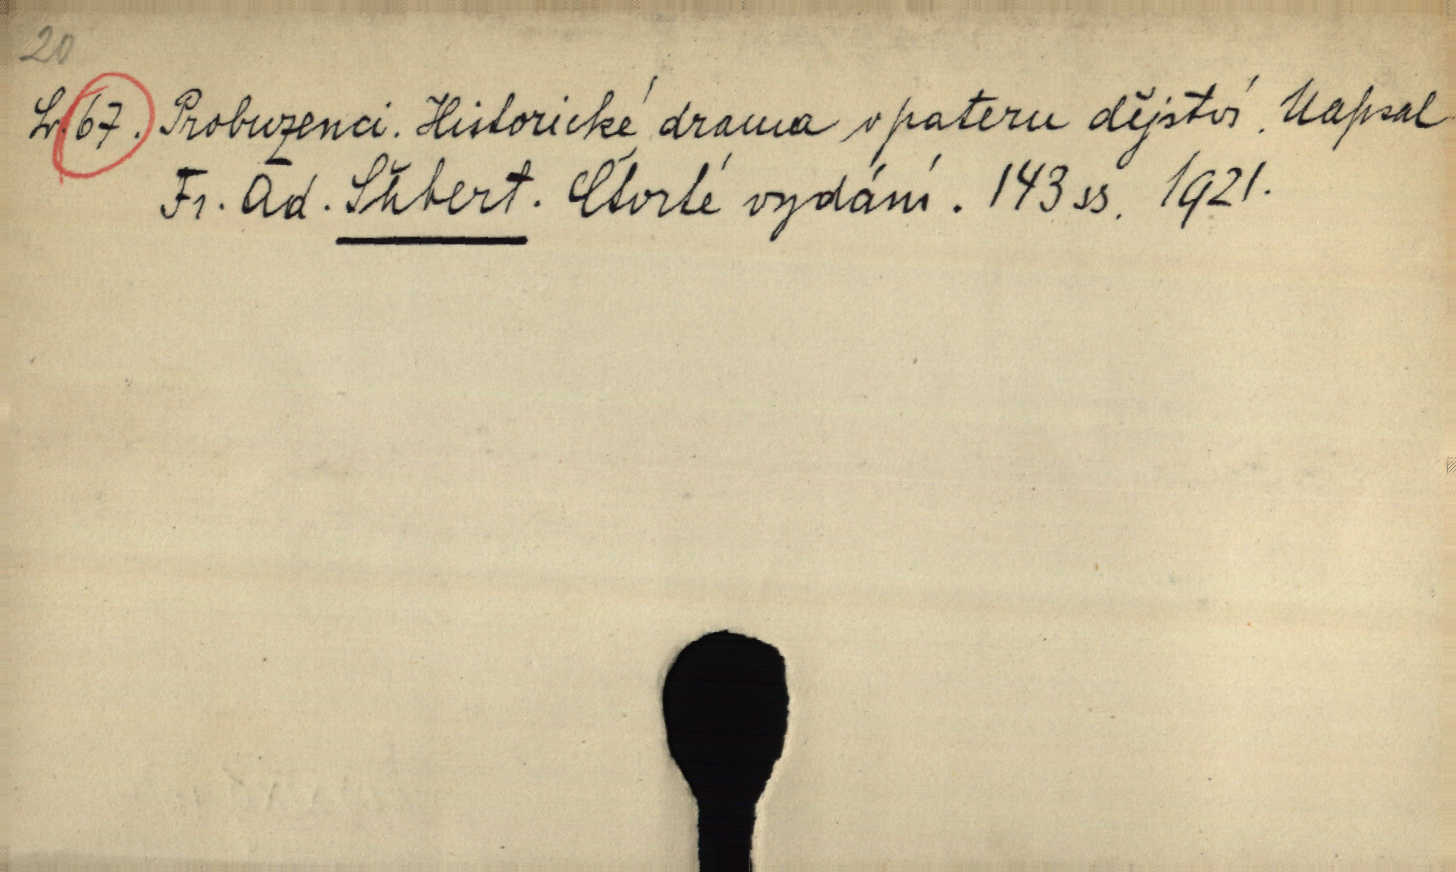 20
Sv. 67. Probuzenci. Historické drama v pateru dějství. Napsal
Fr. Ad. Šubert. Čtvrté vydání. 143 ss. 1921.